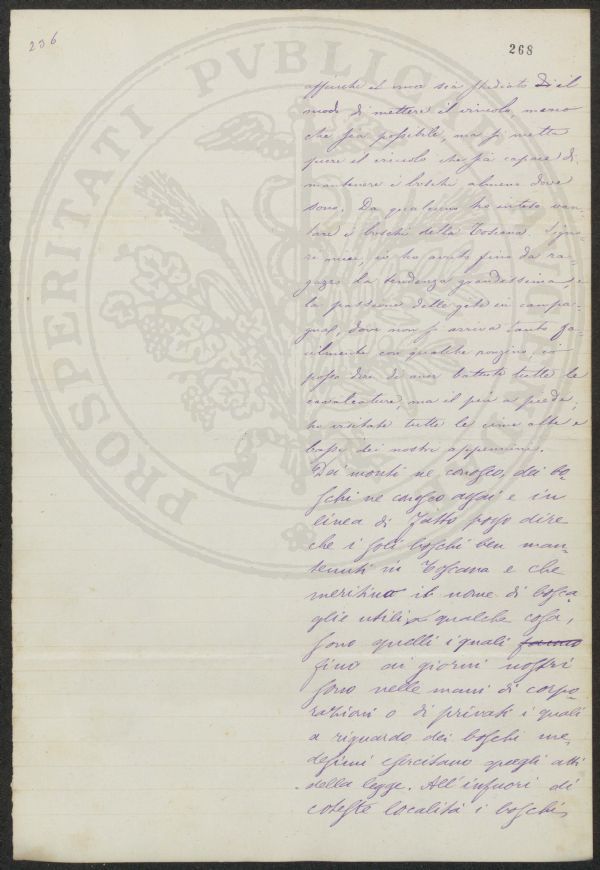 236
268
PROSPERITATI PVBLICAE
affinchè si sia spediato di il
modo di mettere il vincolo meno
che sia possibile, ma si mette
pure il vincolo che sia capace di
mantenere i boschi almeno dove
sono. Da qualcuno ho inteso van-
tare i boschi della Toscana. Signo-
ri miei, io ho avuto fino da ra-
gazzo la tendenza grandissima, e
la passione delle gite in campa-
gna, dove non si arriva tanto fa-
cilmente con qualche ronzino, io
posso dire di aver battute tutte le
cavalcature, ma il più a piedi,
ho visitate tutte le cime alte e
basse dei nostri appennini.
Dei monti ne conosco, dei bo-
schi ne conosco assai e in
linea di fatto posso dire
che i soli boschi ben man-
tenuti in Toscana e che
meritino il nome di bosca-
glie utili a qualche cosa,
sono quelli i quali fanno
fino ai giorni nostri
sono nelle mani di corpo-
razioni o di privati i quali
a riguardo dei boschi me-
desimi esercitano quegli atti
della legge. All'infuori di
coteste località i boschi